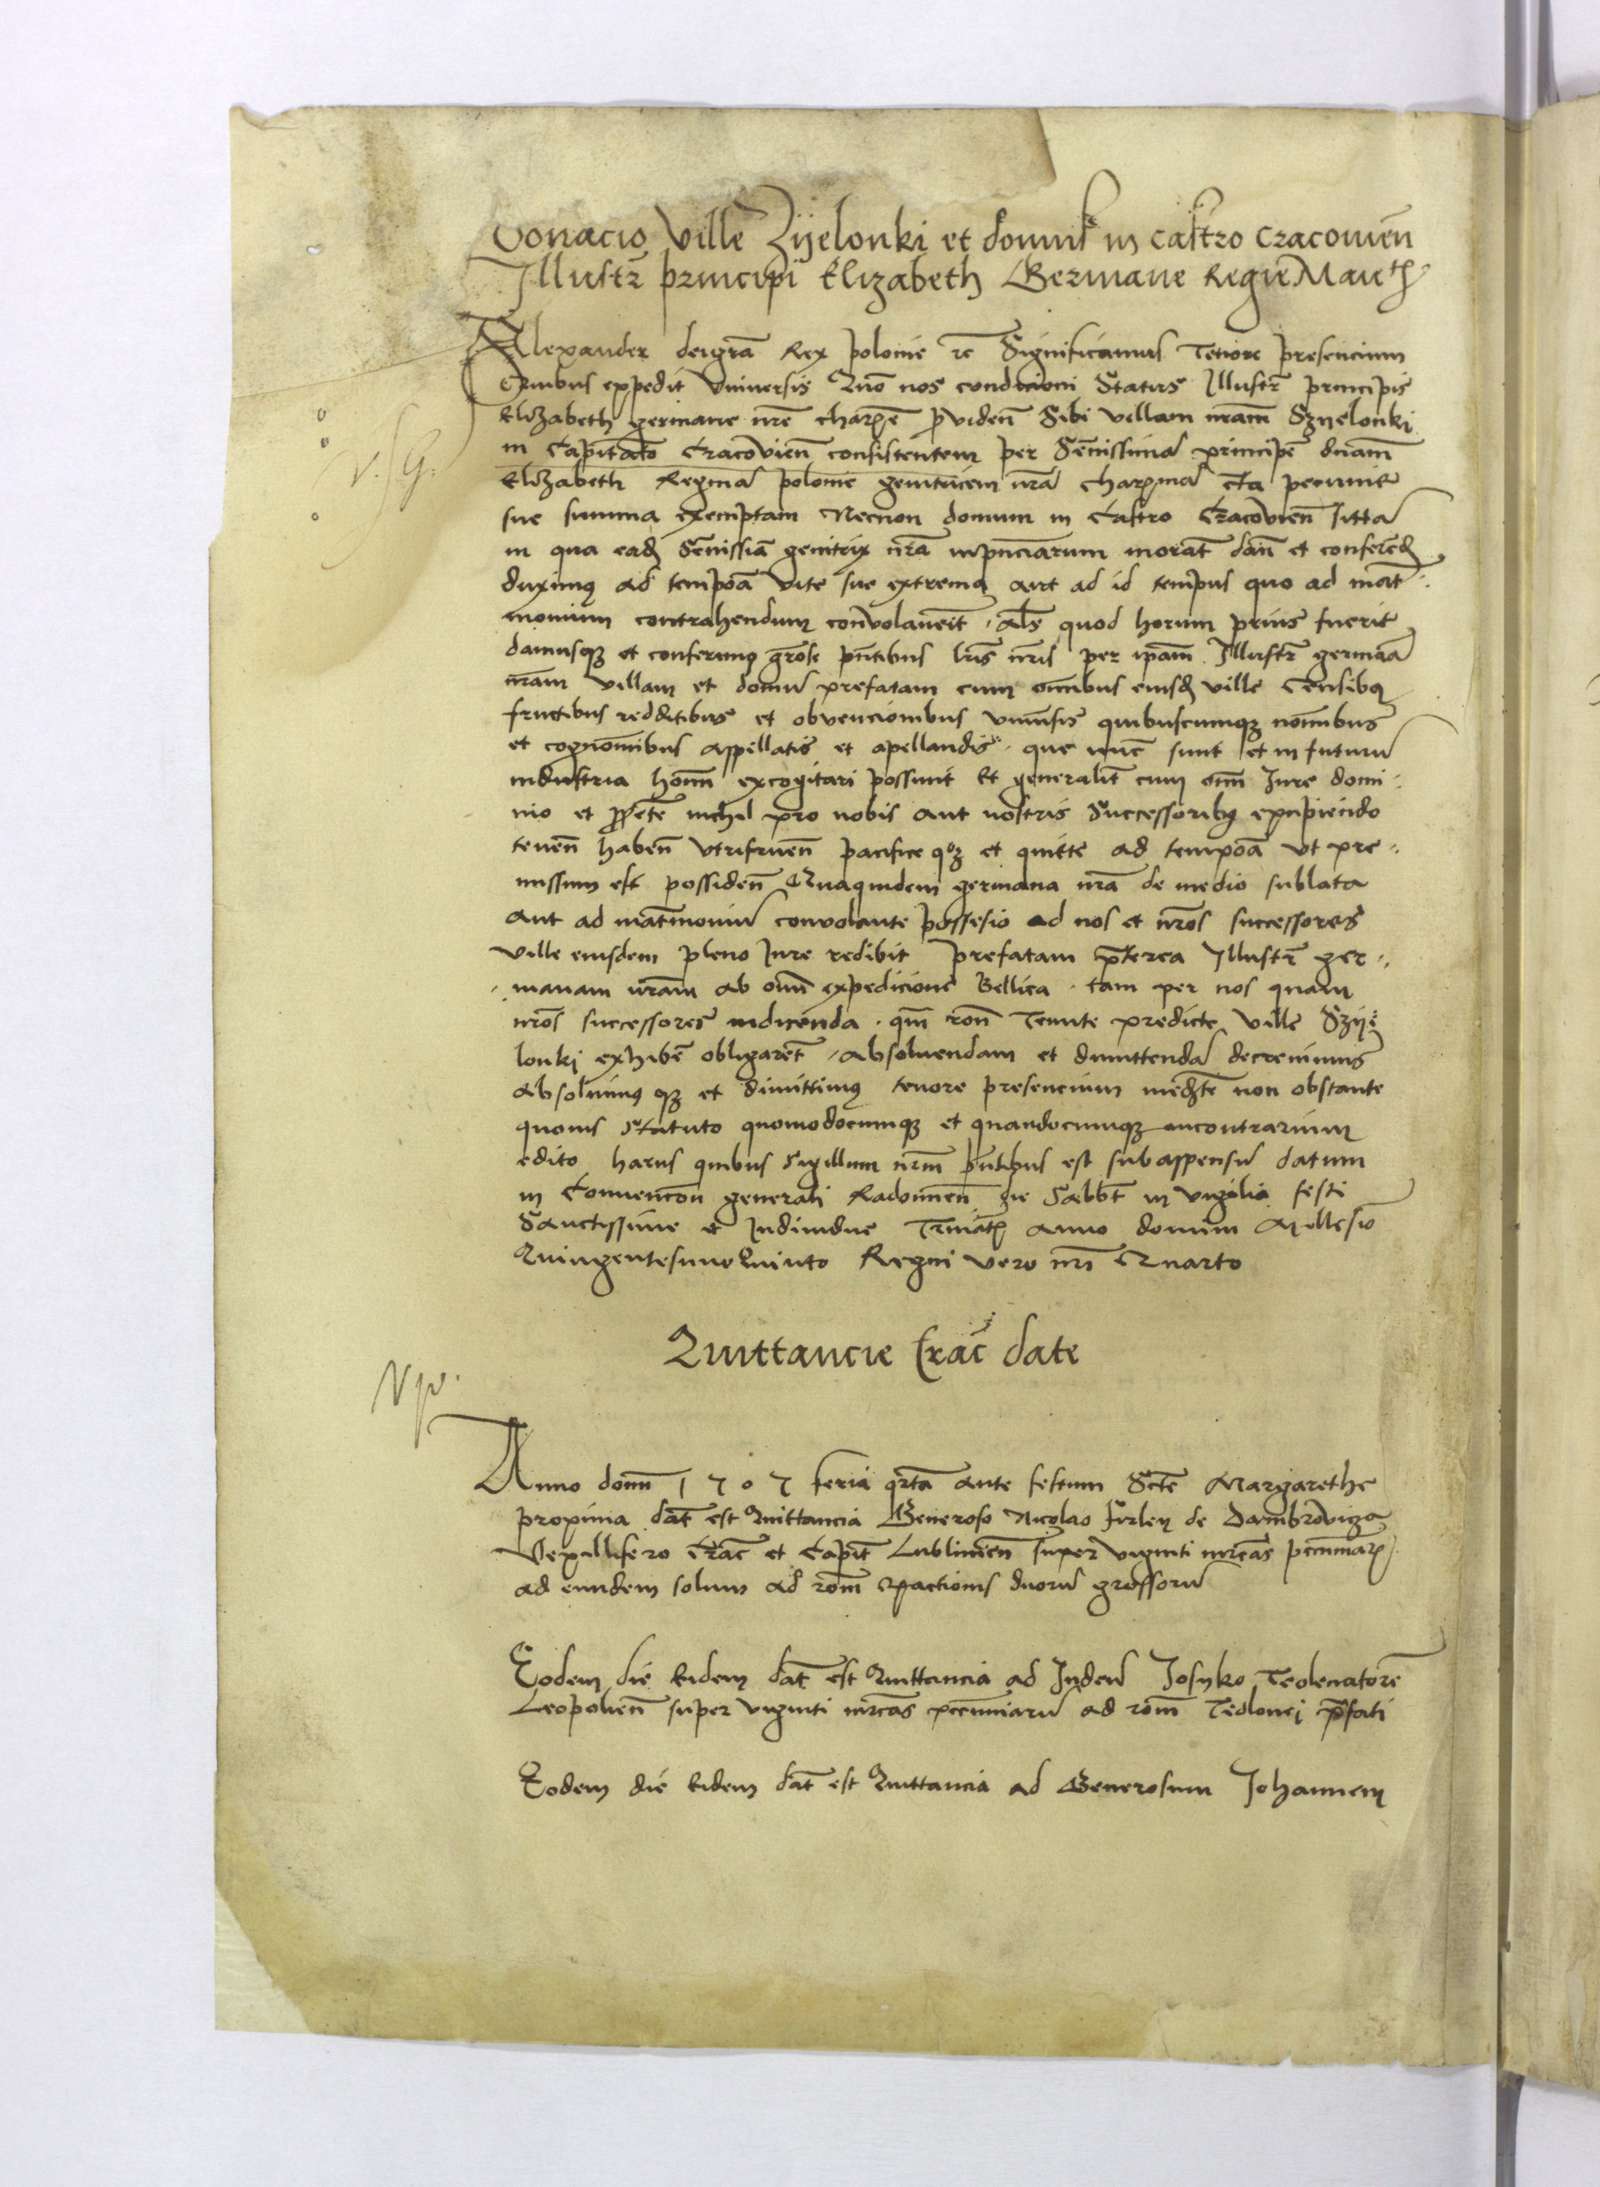 Donacio Ville Zijelonki et domus in castro Cracovien
Illustr principi Elizabeth Germane Regie Maiesti
Alexander dei gra Rex polonie rc Significamus Tenore presencium
Quibus expedit Universis Quo nos condicioni Status Illustr principis
Elizabeth germane nre charme providen Sibi villam nram Szyelonki
in Capitato Cracovien consistentem per Senissima principe dnam
Elizabeth Regina polonie genitricem nra charma certa pecunie
sue summa exemptam Necnon domum in Castro Cracovien sitta
in qua eadem Senissia genitrix nra inpnciarum morat dan et conferend
duximus ad tempoa vite sue extrema aut ad id tempus quo ad mat
monium contrahendum convolaverit. als quod horum prius fuerit
damusque et conferimus grose pntibus lris nris per ipam Illustr germana
nram villam et domu prefatam cum omnibus eiusdem ville Censibus
fructibus redditibus et obvencionibus universis quibuscumque nominibus
et cognominibus appellatis et apellandis. que nunc sunt et in futuru
industria hominum excogitari possunt Et generalit cum omni Jure domi
nio et pprietate nichil pro nobis aut nostris Successoribus excipiendo
tenen haben utrifruen pacifice quoque et quitte ad tempoa ut pre
missum est possiden Quaquidem germana nra de medio sublata
aut ad matrimoniu convolante possesio ad nos et nros successores
ville eiusdem pleno Jure redibit prefatam preterea Illustr ger
manam nram ab omni expedicione Bellica. tam per nos quam
nros successores indicenda. quam ron Tenute predicte Ville Szije
lonki exhibe obligaret. absolvendam et dimittenda decrevimus
absolvimus que et dimittimus tenore presencium mediante non obstante
quovis statuto quomodocumque et quandocumque incontrarium
edito harus quibus Sigillum nrm pntibus est subappensu datum
in Convencon generali Radomien die Sabbt in vigilia festi
Sanctissime et Individue Trinitatis Anno domini Millesio
Quingentesimo Quinto Regni vero nri Quarto
Quittancie Crac date
Anno domi 1505 feria qrta ante festum Scte Margarethe
proxima dat est Quittancia Generoso Nicolao Firley de Dambroviza
Vexillifero Crac et Capit Lublinien super viginti mrcas pecuniarum
ad eundem solum ad rom exactionis duoru grossoru
Eodem die Eidem dat est Quittancia ad Judeu Josyko Teoleneatore
Leopolien super viginti mrcas pecuniaru ad rom Teolonei pfati
Eodem die Eidem dat est Quittancia ad Generosum Johannem